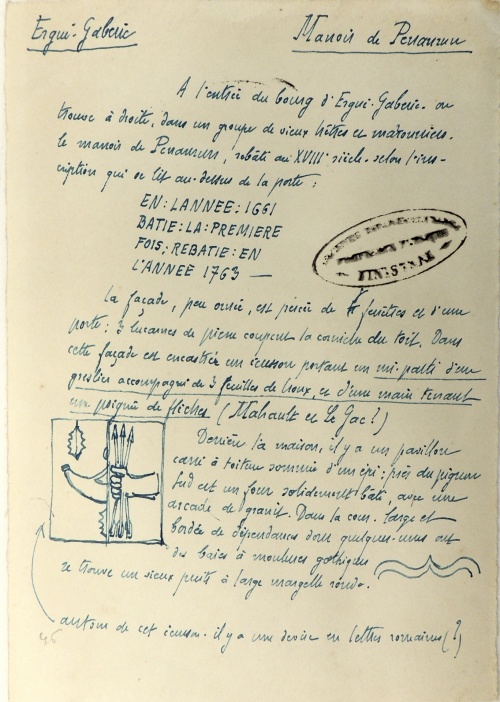 Ergué-Gabéric
Manoir de Penanrun
A l'entrée du bourg d'Ergué-Gaberic. on
trouve à droite, dans un groupe de vieux hêtres et marronniers.
le manoir de Penanrun, rebâti au XVIIIe siècle. selon l'ins-
cription qui se lit au-dessus de la porte :
EN : LANNEE : 1661
BATIE : LA : PREMIERE
FOIS ; REBATIE : EN
L'ANNEE 1763 —
FINISTERE
La façade, peu ornée, est percée de fenêtres et d'une
porte : 3 lucarnes de pierre coupent la corniche du toit. Dans
cette façade est encastré un écusson portant un mi-parti d'un
greslier accompagné de 3 feuilles de houx, et d'une main tenant
une poignée de flèches. (Mahault et Le Gac ?)
Derrière la maison, il y a un pavillon
carré à toiture sommée d'un épi ; près du pignon
sud est un four solidement bâti, avec une
arcade de granit. Dans la cour. large et
bordée de dépendances dont quelques-unes ont
des baies à moulures gothiques
se trouve un vieux puits à large margelle ronde.
autour de cet écusson. il y a une devise en lettres romaines (?)
46